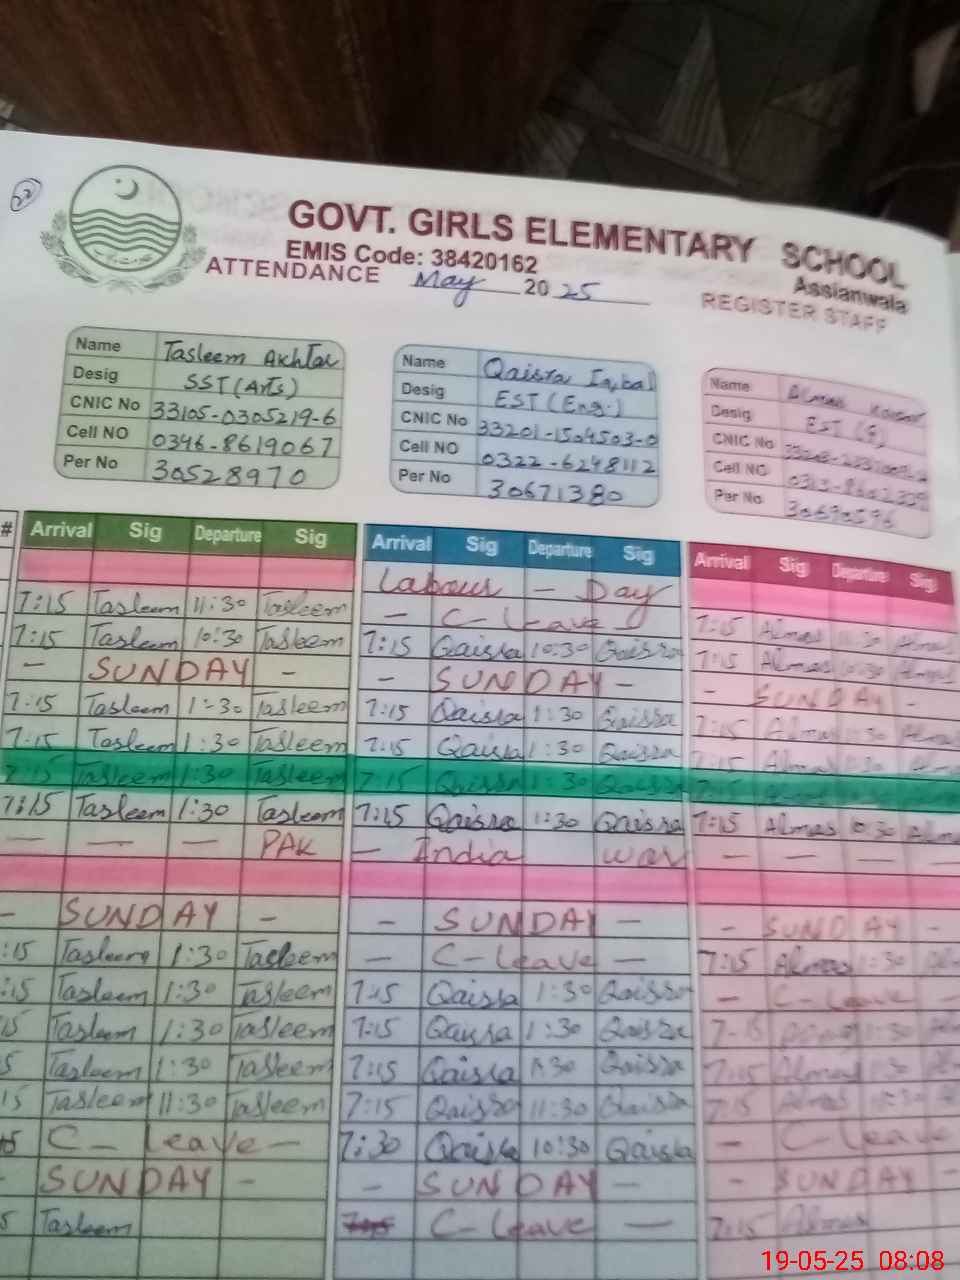 22
GOVT. GIRLS ELEMENTARY SCHOOL
EMIS Code: 38420162
Assianwala
ATTENDANCE May 2025
REGISTER STAFF
Name Tasleem Akhtar
Desig SST (Arts)
CNIC No 33105-0305219-6
Cell NO 0346-8619067
Per No 30528970
Name Qaisra Iqbal
Desig EST (Eng.)
CNIC No 33201-1504503-0
Cell NO 0322-6248112
Per No 30671380
Name Almas Kousar
Desig EST
CNIC No
Cell NO
Per No 30690596
# Arrival Sig Departure Sig Arrival Sig Departure Sig Arrival Sig Departure Sig
Labour - Day
7:15 Tasleem 11:30 Tasleem - C-Leave 7:15 Almas 11:30 Almas
7:15 Tasleem 10:30 Tasleem 7:15 Qaisra 10:30 Qaisra 7:15 Almas 10:30 Almas
- SUNDAY - - SUNDAY - - SUNDAY -
7:15 Tasleem 1:30 Tasleem 7:15 Qaisra 1:30 Qaisra 7:15 Almas 1:30 Almas
7:15 Tasleem 1:30 Tasleem 7:15 Qaisra 1:30 Qaisra 7:15 Almas 1:30 Almas
7:15 Tasleem 1:30 Tasleem 7:15 Qaisra 1:30 Qaisra
7:15 Tasleem 1:30 Tasleem 7:15 Qaisra 1:30 Qaisra 7:15 Almas 10:30 Almas
- - - PAK - India war - - - -
- SUNDAY - - SUNDAY - - SUNDAY -
:15 Tasleem 1:30 Tasleem - C-Leave - 7:15 Almas 1:30
:15 Tasleem 1:30 Tasleem 7:15 Qaisra 1:30 Qaisra - C-Leave -
15 Tasleem 1:30 Tasleem 7:15 Qaisra 1:30 Qaisra 7-15 Almas 1:30
5 Tasleem 1:30 Tasleem 7:15 Qaisra 1:30 Qaisra 7:15 Almas 1:30
15 Tasleem 11:30 Tasleem 7:15 Qaisra 11:30 Qaisra 7:15 Almas
5 C-Leave - 7:30 Qaisra 10:30 Qaisra - C-Leave
SUNDAY - - SUNDAY - - SUNDAY -
5 Tasleem C-Leave - 7:15 Almas
19-05-25 08:08